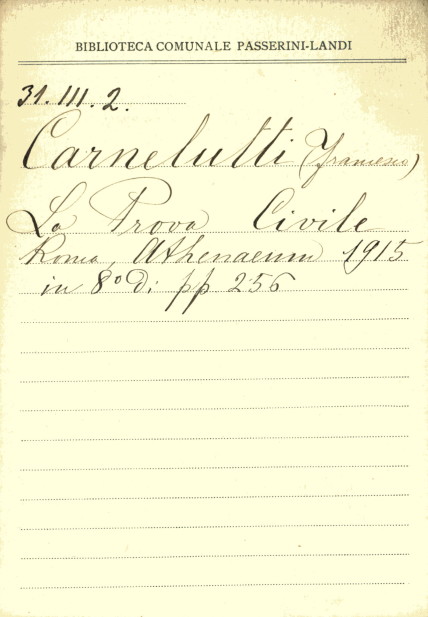 BIBLIOTECA COMUNALE PASSERINI-LANDI
31. III. 2.
Carnelutti (Francesco)
La Prova Civile
Roma, Athenaeum 1915
in 8° di pp 256